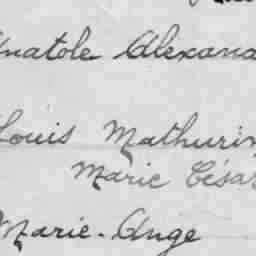 Anatole Alexand
Louis Mathurin
Marie César
Marie-Ange